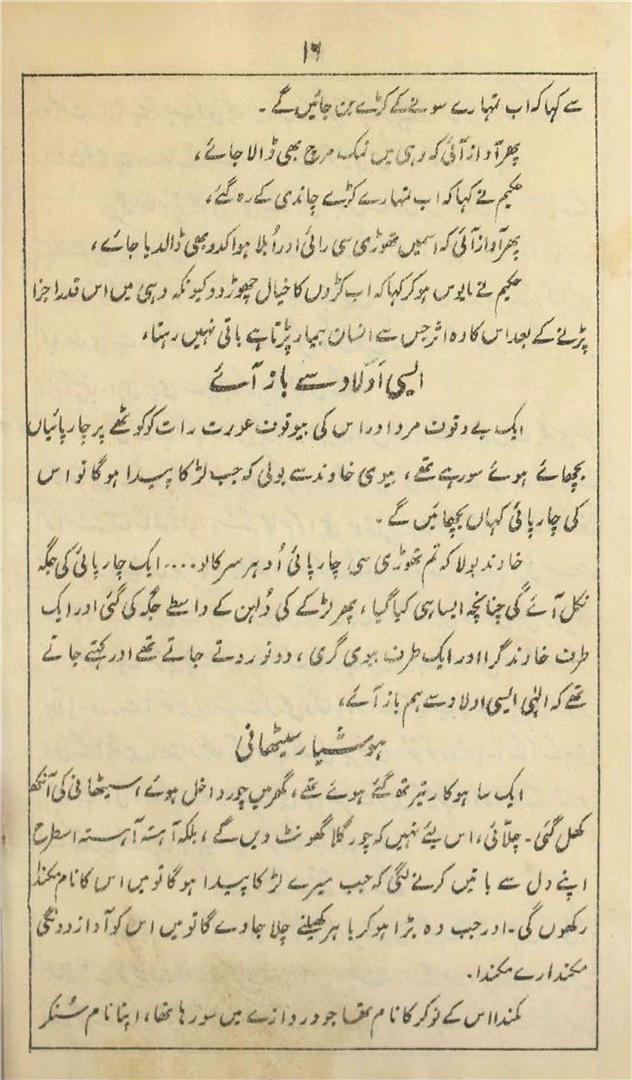 ۱۶
سے کہا کہ اب تمہارے سونے کے کڑے بن جائیں گے۔
پھر آواز آئی کہ دہی میں نمک مرچ بھی ڈالا جائے،
حکیم نے کہا کہ اب تمہارے کڑے چاندی کے رہ گئے،
پھر آواز آئی کہ اسمیں تھوڑی سی رائی اور اُبلا ہوا کدو بھی ڈالدیا جائے،
حکیم نے مایوس ہو کر کہا کہ اب کڑوں کا خیال چھوڑ دو کیونکہ دہی میں اس قدر اجزا
پڑنے کے بعد اس کا وہ اثر جس سے انسان بیمار پڑتا ہے باقی نہیں رہتا،
ایسی اَولاد سے باز آئے
ایک بے وقوف مرد اور اس کی بیوقوف عورت رات کو کوٹھے پر چارپائیاں
بچھائے ہوئے سو رہے تھے، بیوی خاوند سے بولی کہ جب لڑکا پیدا ہوگا تو اس
کی چارپائی کہاں بچھائیں گے۔
خاوند بولا کہ تم تھوڑی سی چارپائی اُدہر سرکالو.... ایک چارپائی کی جگہ
نکل آئے گی چنانچہ ایسا ہی کیا گیا، پھر لڑکے کی دُلہن کے واسطے جگہ کی گئی اور ایک
طرف خاوند گرا اور ایک طرف بیوی گری، دونو روتے جاتے تھے اور کہتے جاتے
تھے کہ الٰہی ایسی اولاد سے ہم باز آئے،
ہوشیار سیٹھانی
ایک ساہوکار تیرتھ گئے ہوئے تھے، گھر میں چور داخل ہوئے، سیٹھانی کی آنکھ
کھل گئی۔ چلّائی، اس لئے نہیں کہ چور گلا گھونٹ دیں گے، بلکہ آہستہ آہستہ اسطرح
اپنے دل سے باتیں کرنے لگی کہ جب میرے لڑکا پیدا ہوگا تو میں اس کا نام مکندا
رکھوں گی۔ اور جب وہ بڑا ہو کر باہر کھیلنے چلا جاوے گا تو میں اس کو آواز دونگی
مکندارے مکندا۔
مکندا اس کے نوکر کا نام تھا جو دروازے میں سو رہا تھا، اپنا نام سُنکر